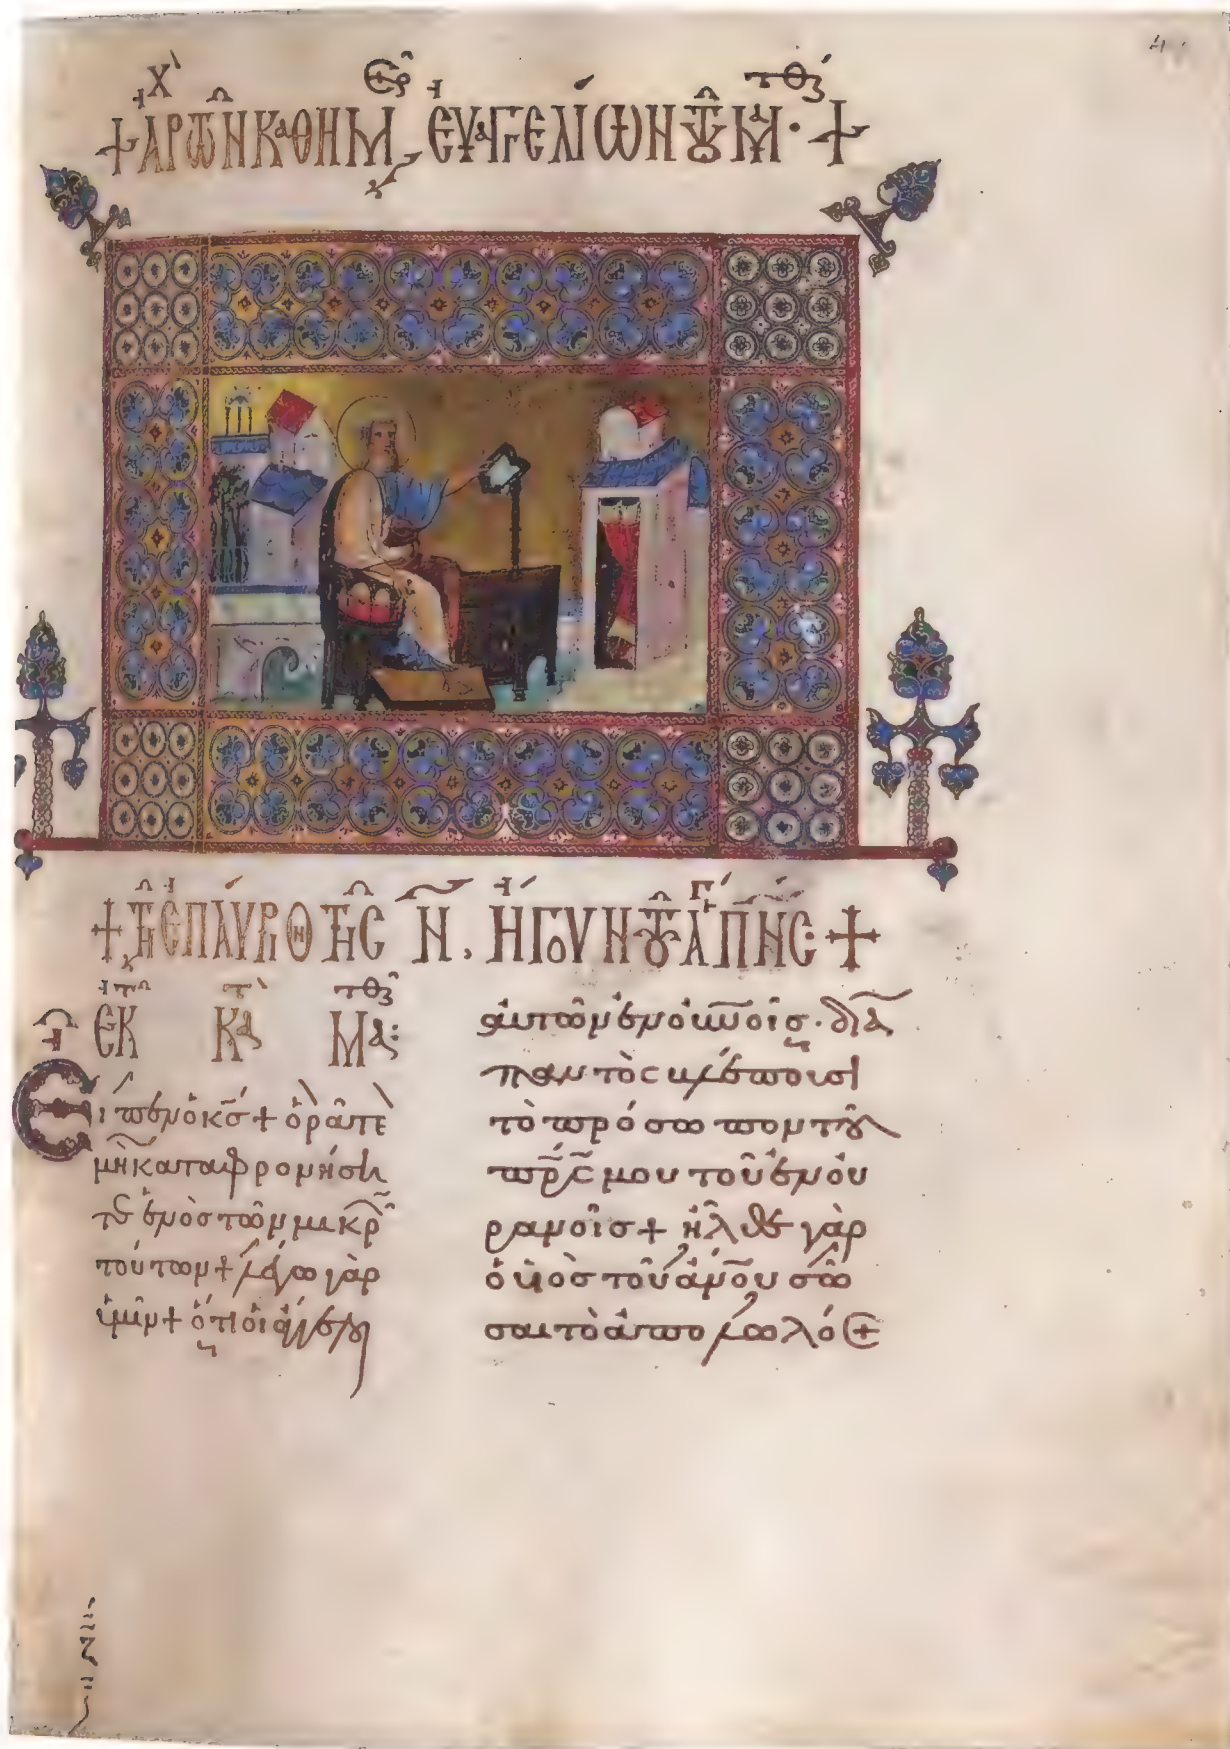 + ἀρχ τῶν καθημ ἑορ εὐαγγελίων τοῦ ματθ · +
+ τῇ ἐπαύριον τῆς Ν, ἤγουν τοῦ ἁγ πνς +
ἐκ τοῦ κατὰ Ματθ:
Εἶπεν ὁ κς + ὁρᾶτε
μὴ καταφρονήση
τε ἑνὸς τῶν μικρῶν
τούτων + λέγω γὰρ
ὑμῖν + ὅτι οἱ ἄγγελοι
αὐτῶν ἐν οὐνοῖς · διὰ
παντὸς βλέπουσι
τὸ πρόσωπον τοῦ
πρς μου τοῦ ἐν οὐ
ρανοῖς + ἦλθε γὰρ
ὁ υἱὸς τοῦ ἀνου σῶ
σαι τὸ ἀπολωλός +